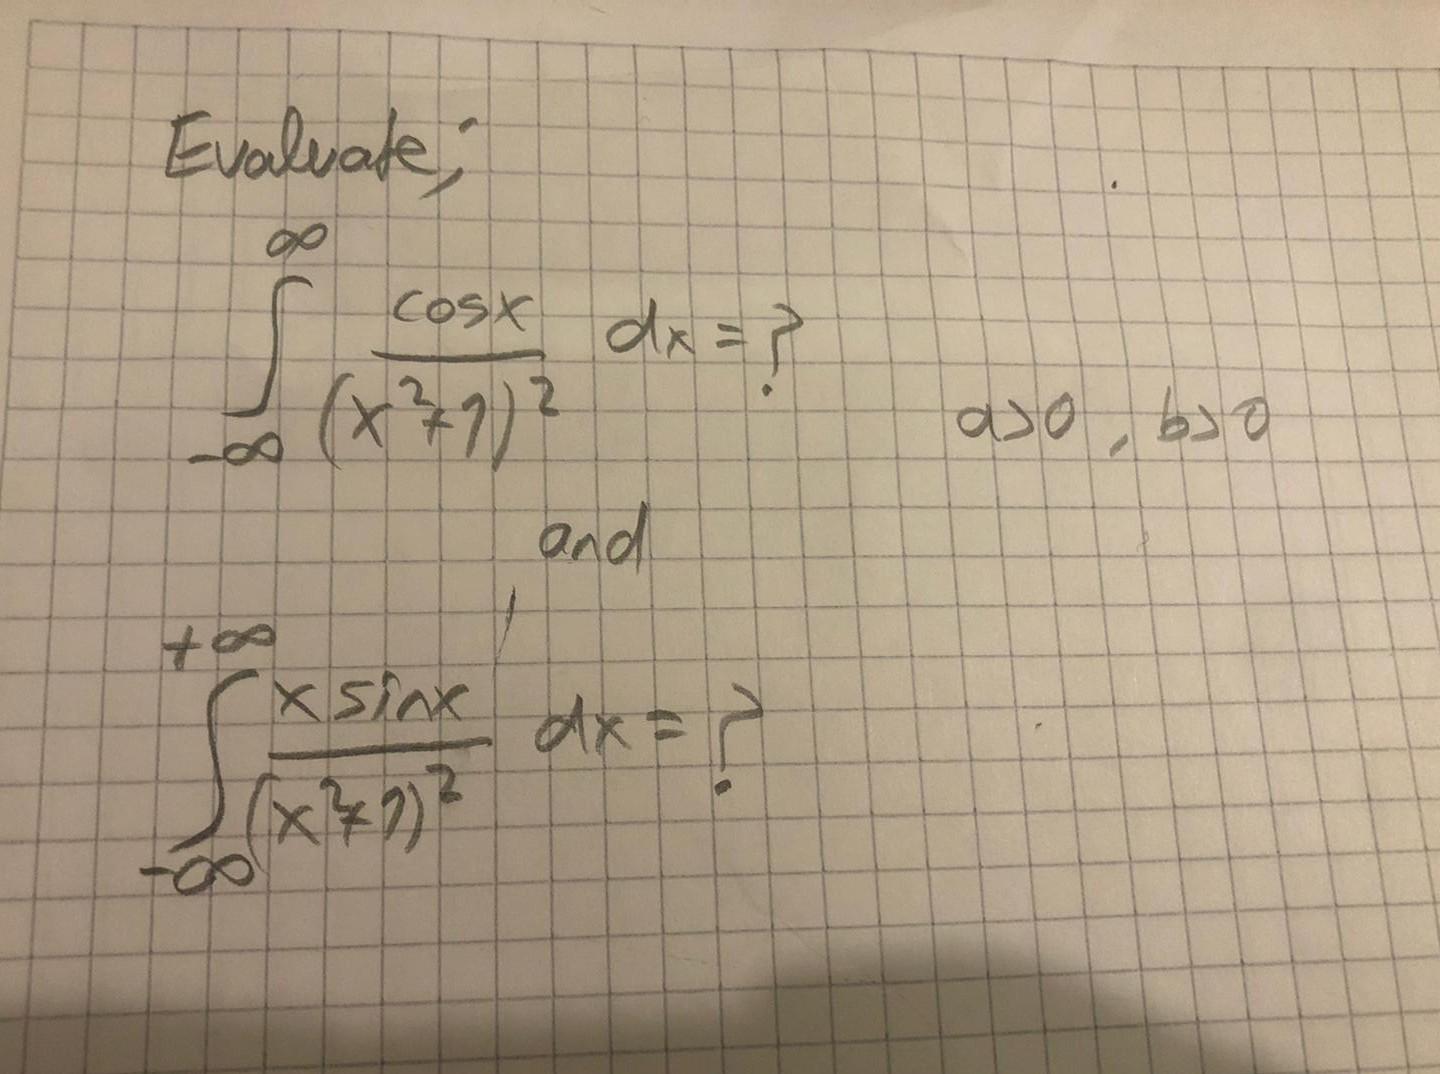 Evaluate;
∫_{-∞}^{∞} cosx / (x²+1)² dx = ?
a>0, b>0
and
∫_{-∞}^{+∞} x sinx / (x²+1)² dx = ?